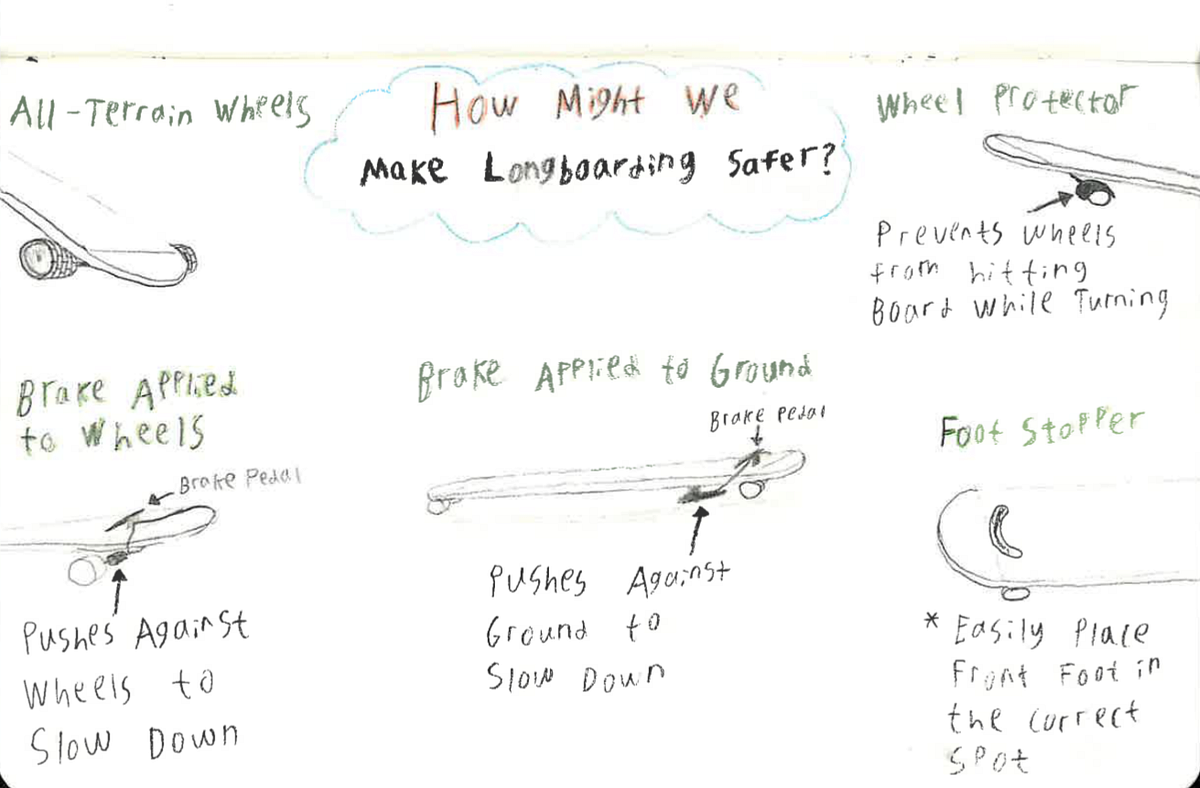 How Might We
Make Longboarding Safer?
All-Terrain Wheels
Wheel Protector
Prevents Wheels
from hitting
Board While Turning
Brake Applied
to Wheels
Brake Pedal
Pushes Against
Wheels to
Slow Down
Brake Applied to Ground
Brake Pedal
Pushes Against
Ground to
Slow Down
Foot Stopper
* Easily Place
Front Foot in
the correct
Spot